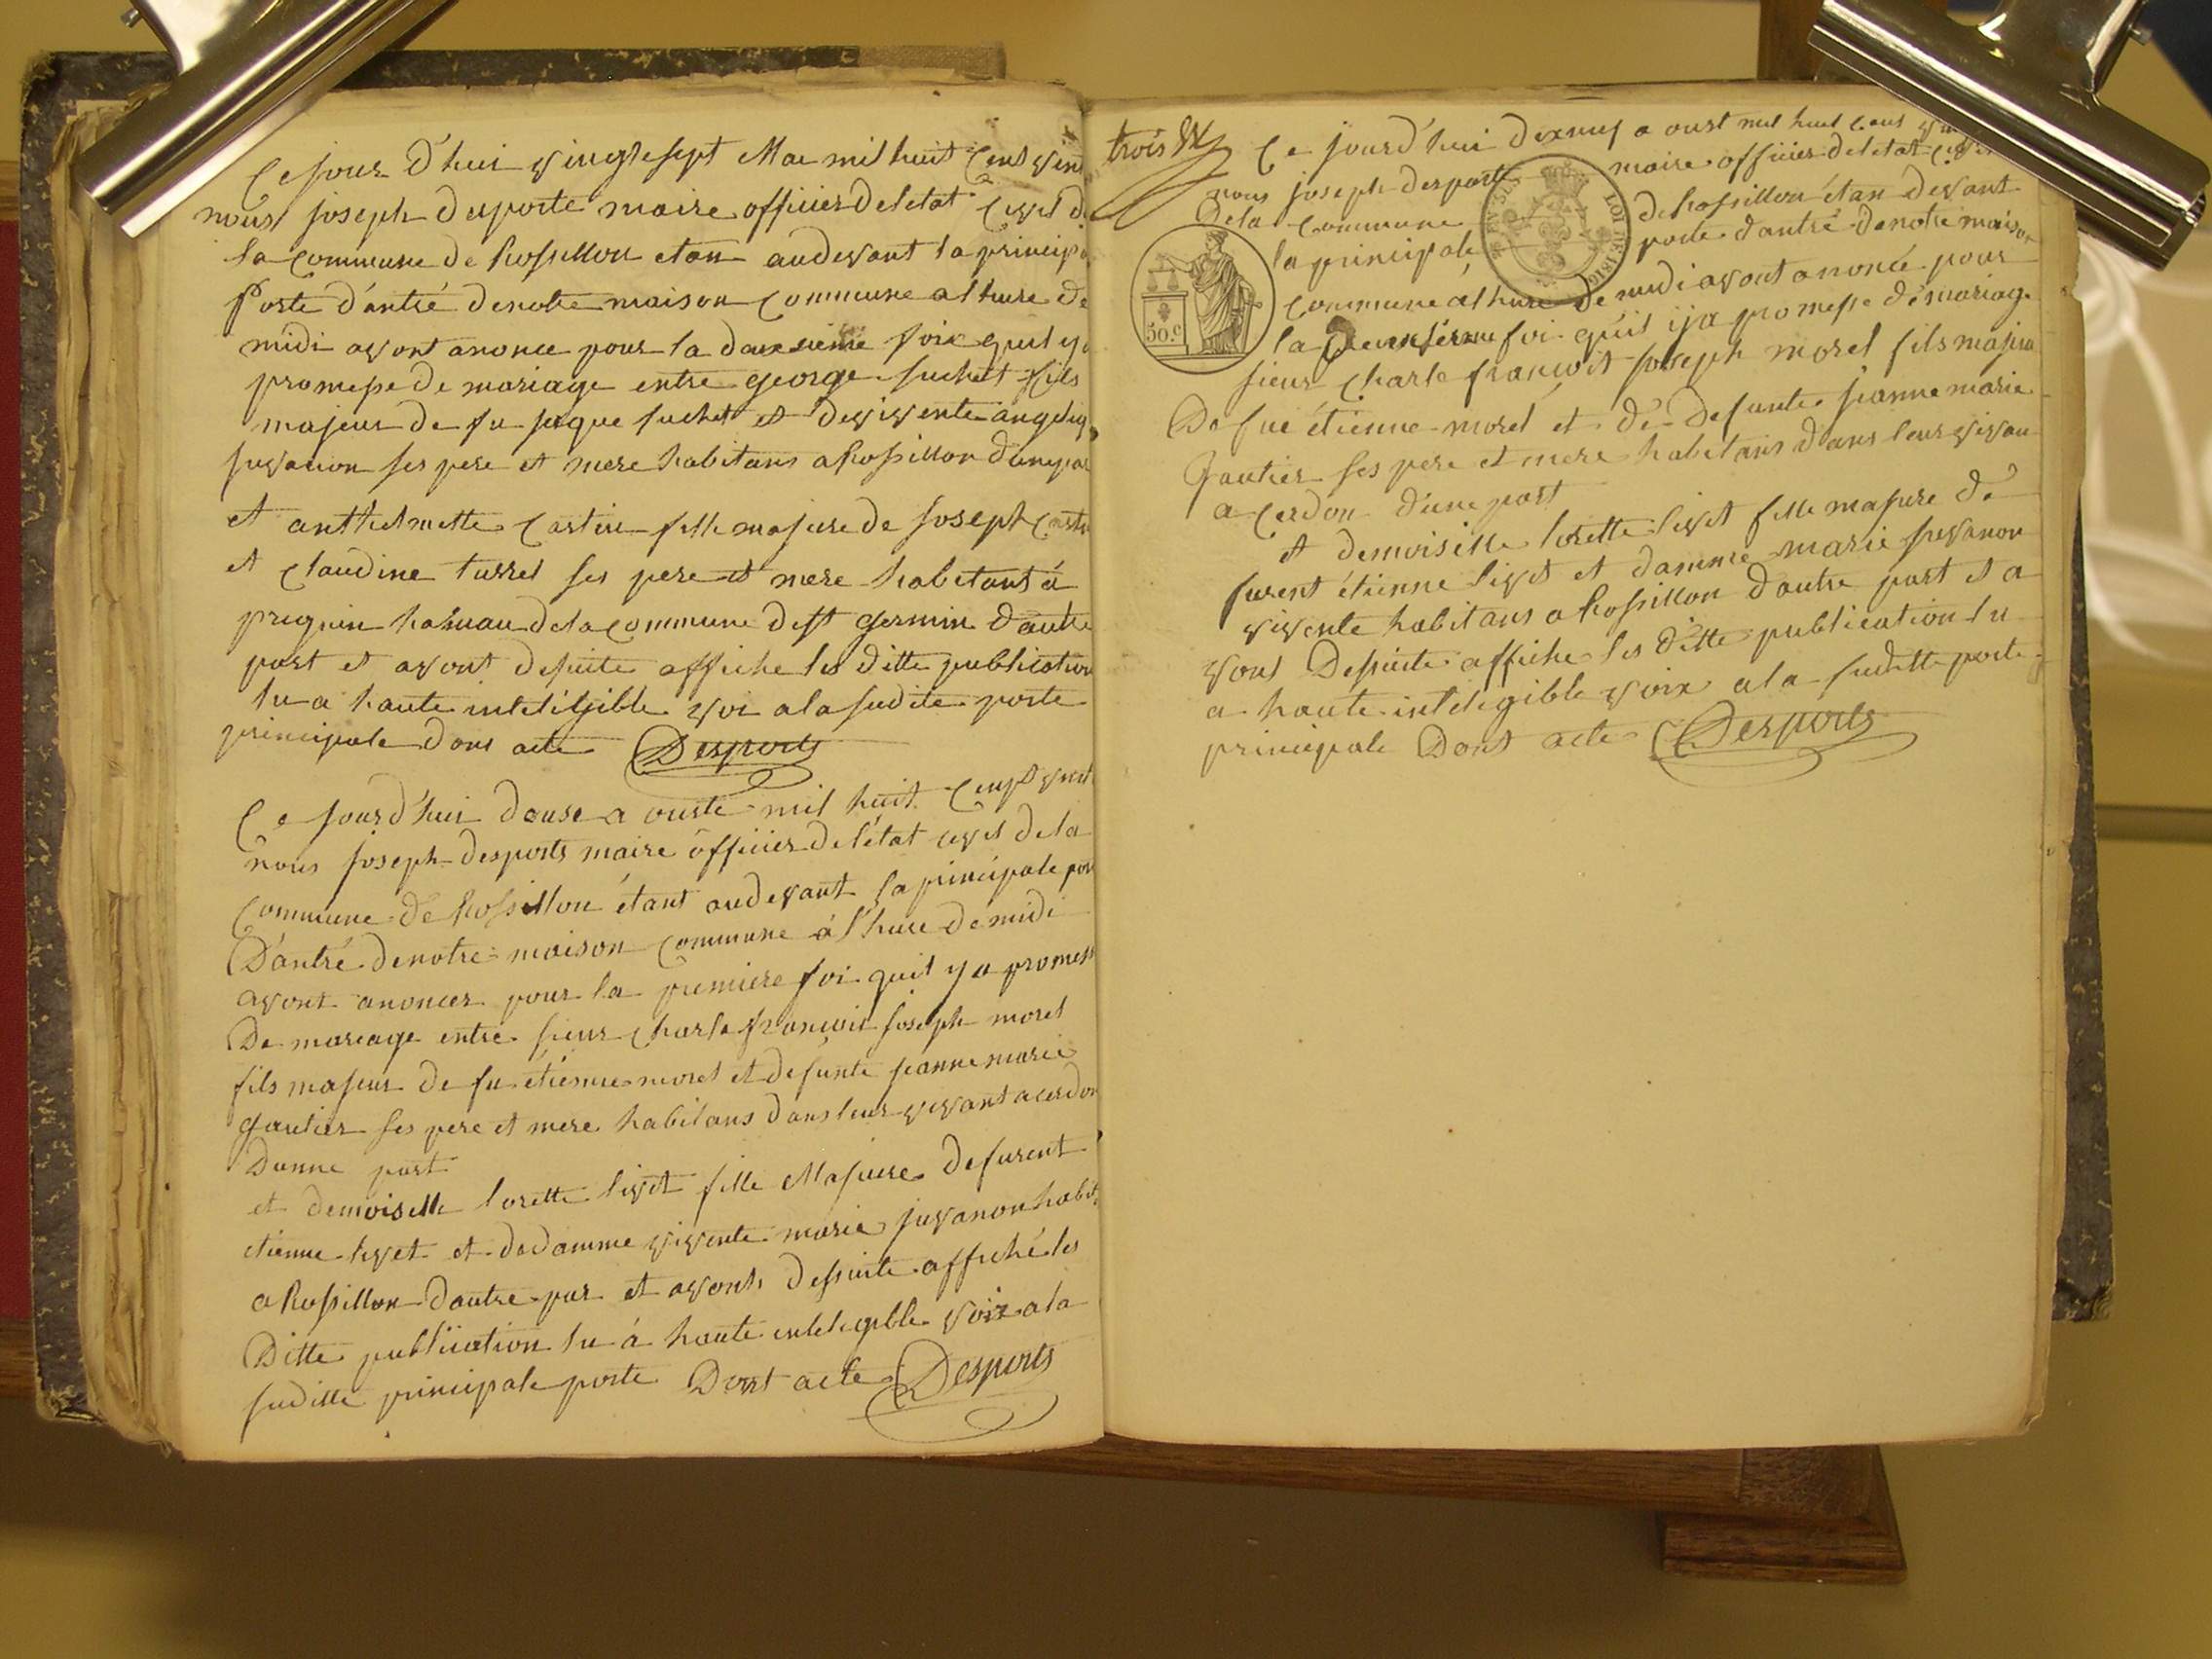 Ce jour d'hui vingt sept Mai mil huit Cent vin
nous joseph desporte maire officier de letat Civil d
la commune de Rossillon etan audevant la princip
Porte d'antré de notre maison Commune a lhure de
midi avont anonce pour la deuxsieme foix quil y a
promesse de mariage entre george juchet fils
majeur de fu jaque juchet et de vivente angeliq
juvanon ses pere et mere habitans a Rossillon dune par
et anthelmette Castin fille majure de joseph Castin
et claudine turrel ses pere et mere habitant à
pregnin hamau de la commune de st germin d'autre
part et avont desuite affiche les ditte publication
lu a haute intelligible voi a la sudite porte
principale dont acte Desports
Ce jourd'hui douse a ouste mil huit Cent vint
nous joseph desports maire officier de létat civil de la
Commune de Rossillon étant audevant la principale por
D'antré de notre maison Commune à l'hure de midi
avont anoncer pour la premiere foi quil y a promess
De mariage entre sieur Charle françois joseph morel
fils majeur de fu étienne morel et defunte jeanne marie
gautier ses pere et mere habitans dans leur vivant a cerdon
Dunne part
et demoiselle lorette livet fille Majeure de furent
etienne livet et de damme vivente marie juvanon habit
a Rossillon dautre par et avont dessuite affiché les
Ditte publication lu à haute intelegible voix a la
suditte principale porte Dont acte Desports
trois
Ce jourd'hui dixneuf a oust mil huit Cent vin
nous joseph desporte maire officier de letat civil
De la Commune de Rossillon étan devant
la principale porte dantré de notre maison
Commune a lhure de midi avont anoncé pour
la deuxsieme foi qu'il ij a promesse de mariage
sieur Charle françois joseph morel fils majeu
De fue étienne morel et de defunte jeanne marie
gautier ses pere et mere habitans dans leur vivan
a Cerdon d'une part
et demoiselle lorette livet fille majure de
furent étienne livet et damme marie juvanon
vivente habitans a Rossillon dautre part et a
vont Dessuite affiche les ditte publication lu
a haute intelegible voix a la suditte porte
principale Dont acte Desports
50.c
LOI DE 1816